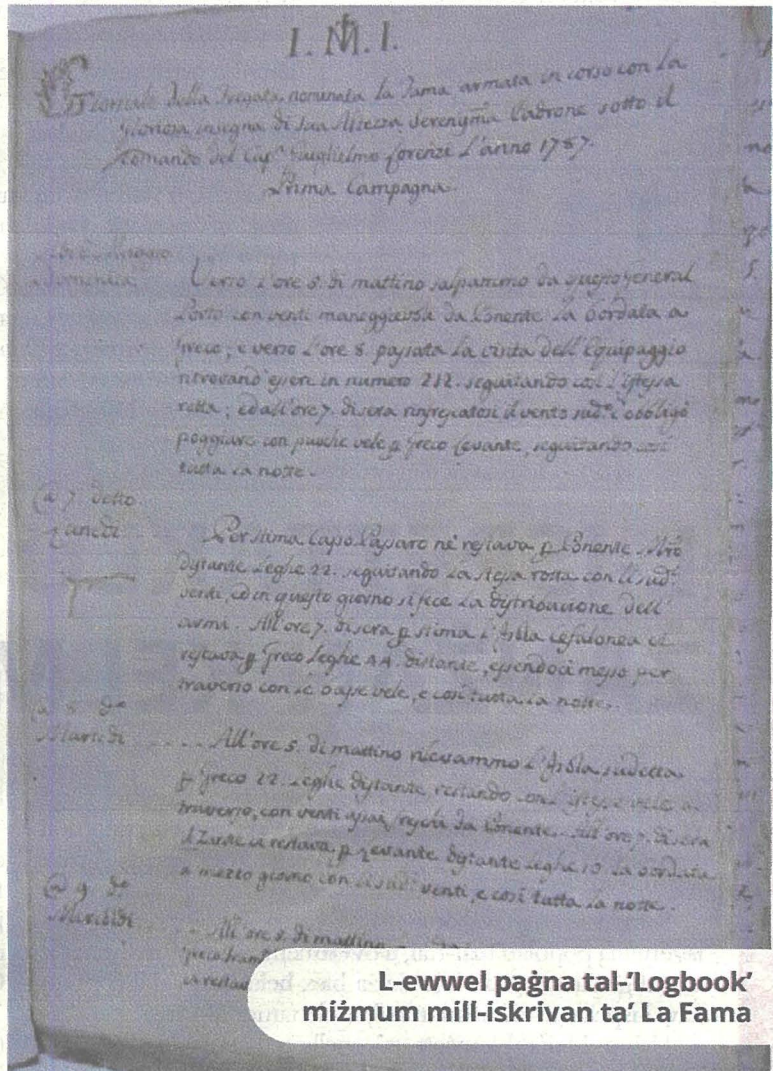 I. M. I.
Giornale della Fregata nominata la Fama armata in corso con la
gloriosa insegna di sua Altezza Serenyma Padrone sotto il
comando del Cap. Guglielmo Lorenzi L'anno 1787.
Prima Campagna.
Domenica
Verso l'ore 5. di mattino salpammo da questo General
Porto con venti maneggievoli da Ponente La bordata a
Greco; e verso l'ore 8. passata La visita dell'Equipaggio
ritrovand' essere in numero 212. seguitando così l'istessa
rotta; ed all'ore 7. di sera rinfrescatosi il vento sud. ci obbligò
poggiare con puoche vele p Greco Levante, seguitando così
tutta la notte.
a 7 detto
Lunedì
Per stima Capo Passaro ne restava p Ponente Mro
distante Leghe 22. seguitando La stessa rotta con li sud.
venti, ed in questo giorno si fece La distribuzione dell
armi. All'ore 7. di sera p stima L'Isola Cefalonea ci
restava p Greco Leghe 44. distante, essendoci messo per
traverso con le basse vele, e così tutta la notte.
a 8 do
Martedì
All'ore 5. di mattino rilevammo L'Isola sudetta
p Greco 22. Leghe distante restando con l'istesse vele a
traverso, con venti assai da Ponente. All'ore 7. di sera
il Zante ci restava p Levante distante Leghe 10. La bordata
a mezzo giorno con li sud. venti, e così tutta la notte.
a 9 do
All'ore 5. di mattino
L-ewwel paġna tal-‘Logbook’
miżmum mill-iskrivan ta’ La Fama